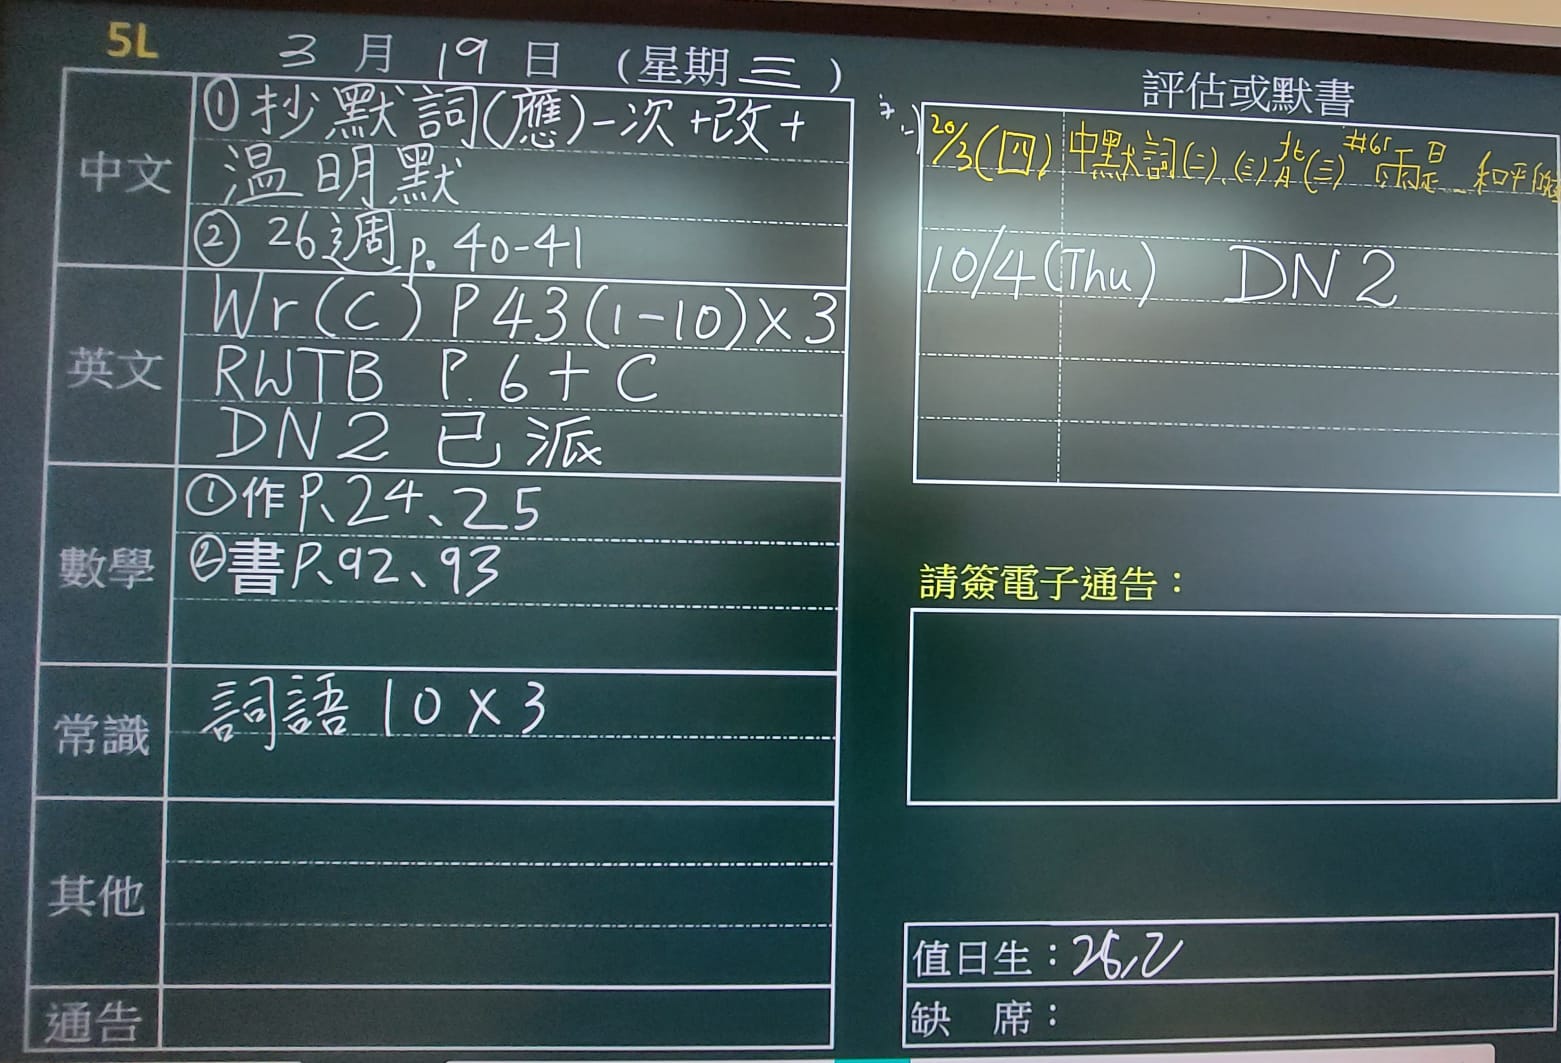 5L
3月19日(星期三)
中文
①抄默詞(應)一次+改+
溫明默
② 26週 p. 40-41
英文
Wr(C) P 43 (1-10) X 3
RWTB P. 6 + C
DN 2 已派
數學
①作P、24、25
②書P、92、93
常識
詞語 10 X 3
其他
通告
評估或默書
20/3(四) 中默詞(二)、(三) 背(三) #61 雨是 和平的
10/4(Thu) DN 2
請簽電子通告：
值日生：26,2
缺 席：